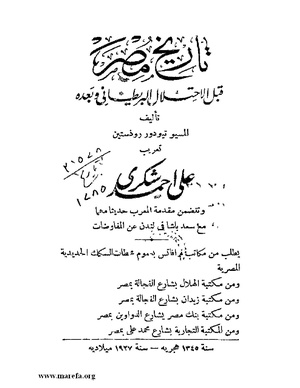 تاريخ مصر
قبل الاحتلال البريطاني وبعده
تأليف
المسيو تيودور روذستين
تعريب
على احمد شكرى
وتتضمن مقدمة المعرب حديثا مهما
مع سعد باشا فى لندن عن المفاوضات
يطلب من مكاتب بعموم محطات السكك الحديدية
المصرية
ومن مكتبة الهلال بشارع الفجالة بمصر
ومن مكتبة زيدان بشارع الفجالة بمصر
ومن مكتبة بنك مصر بشارع الدواوين بمصر
ومن المكتبة التجارية بشارع محمد على بمصر
سنة ١٣٤٥ هجريه — سنة ١٩٢٧ ميلاديه
www.marefa.org